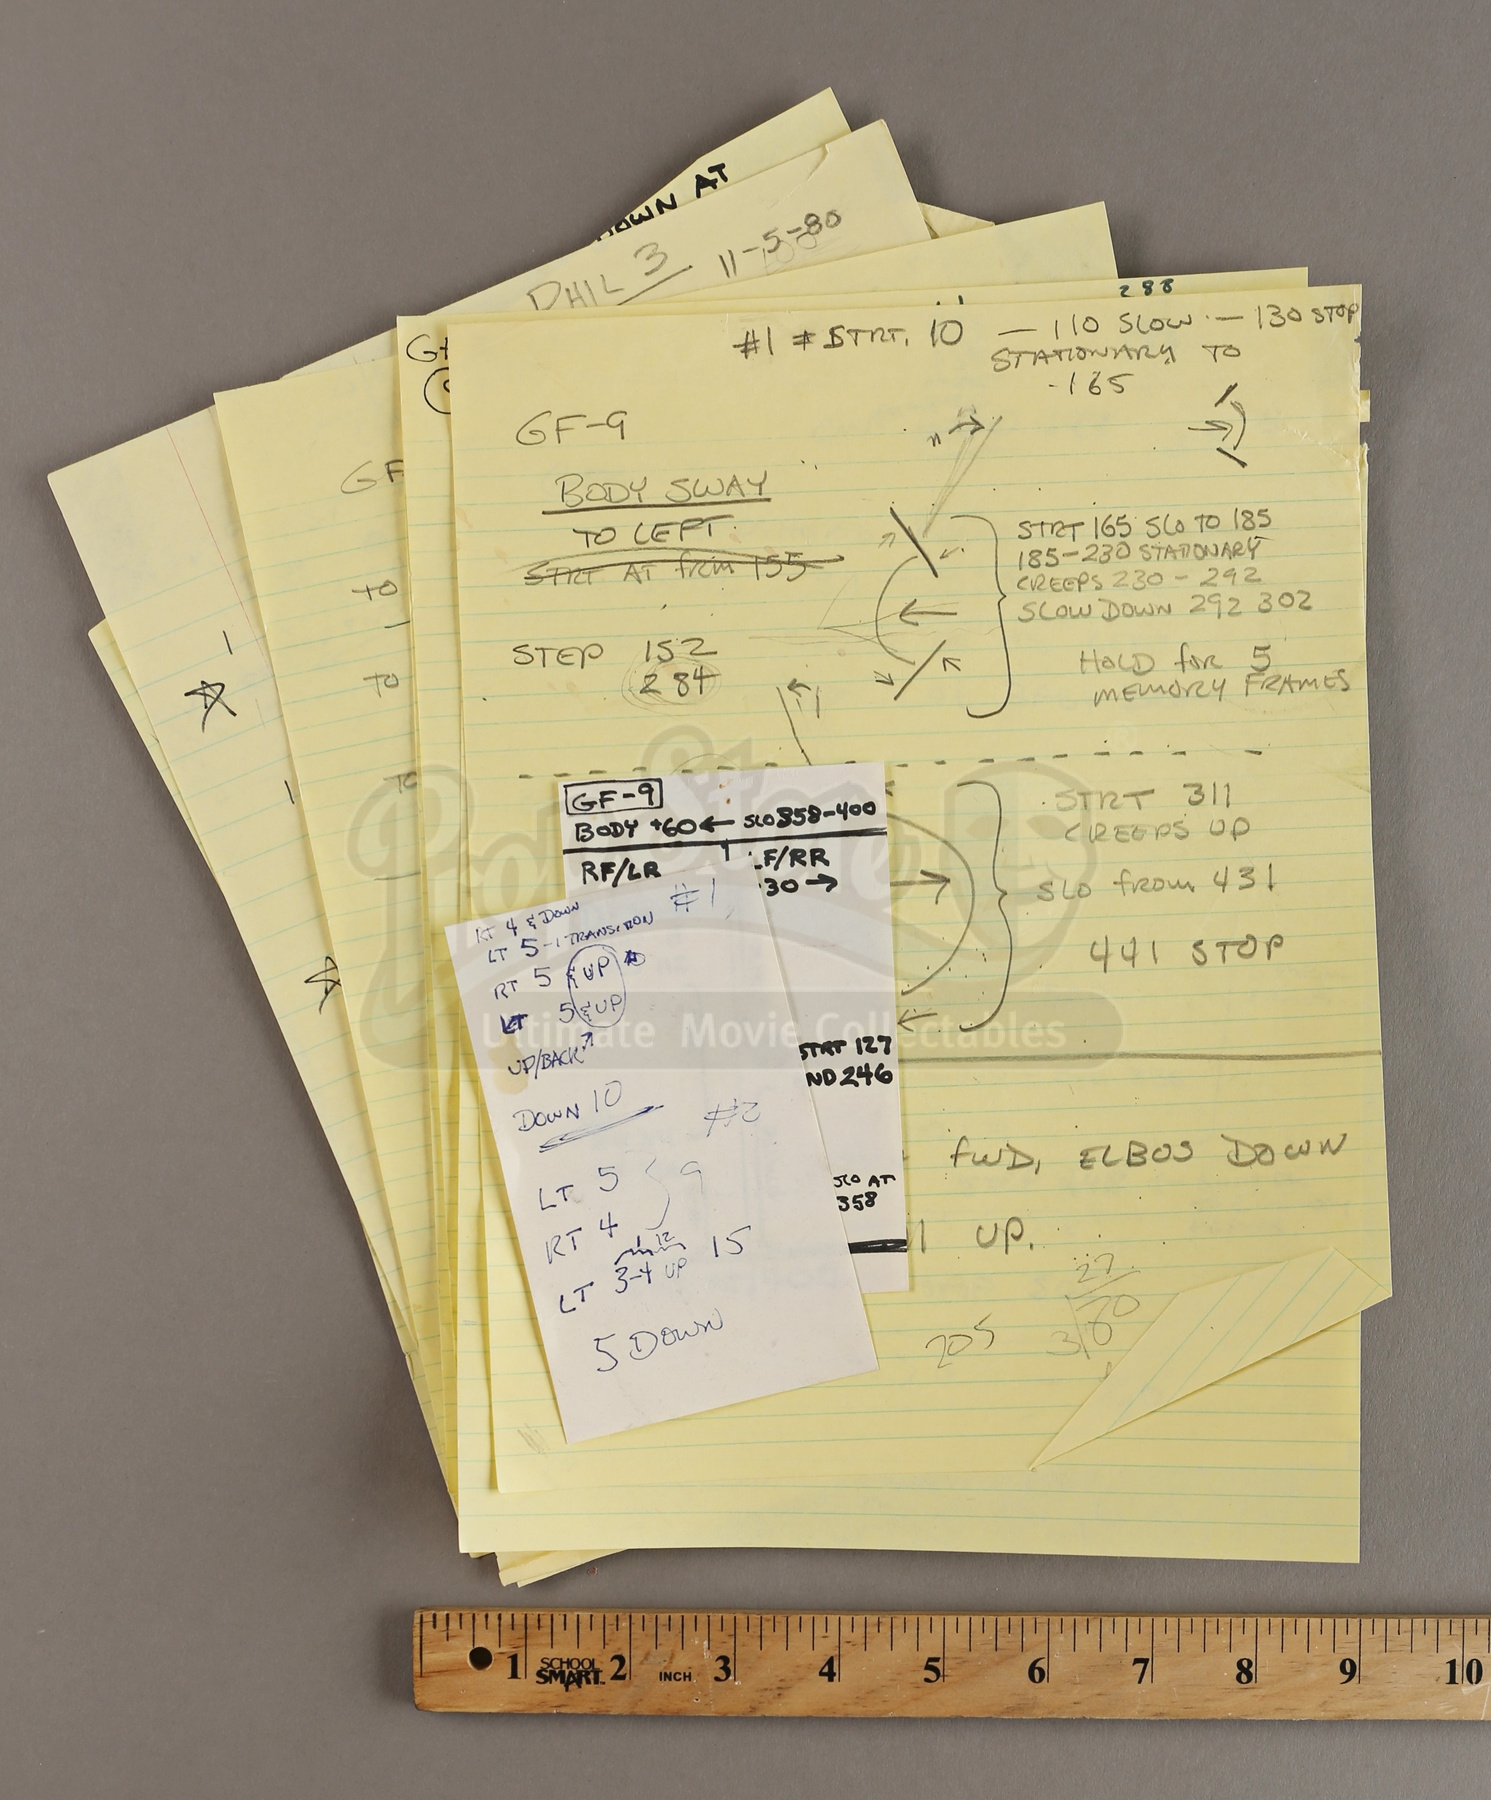 DOWN AT
PHIL 3 11-5-80
288
#1 # STRT. 10 — 110 SLOW — 130 STOP
STATIONARY TO
165
GF-9
BODY SWAY
TO LEFT
STRT AT frm 155
STEP 152
284
STRT 165 SLO TO 185
185-230 STATIONARY
CREEPS 230 - 292
SLOW DOWN 292 302
HOLD for 5
MEMORY FRAMES
GF
TO
TO
TO
1
1
STRT 311
CREEPS UP
SLO from 431
441 STOP
fWD, ELBOS DOWN
UP.
27
3/80
205
GF-9
BODY +60 ← SLO 358-400
RF/LR
F/RR
30 →
STRT 127
ND 246
SLO AT
358
#1
RT 4 & DOWN
LT 5-1 TRANSITION
RT 5 & UP
LT 5 & UP
UP/BACK
DOWN 10
#2
LT 5
9
RT 4
12
LT 3-4 UP 15
5 DOWN
Pop Store
Ultimate Movie Collectables
1 SCHOOL SMART 2 INCH 3 4 5 6 7 8 9 10